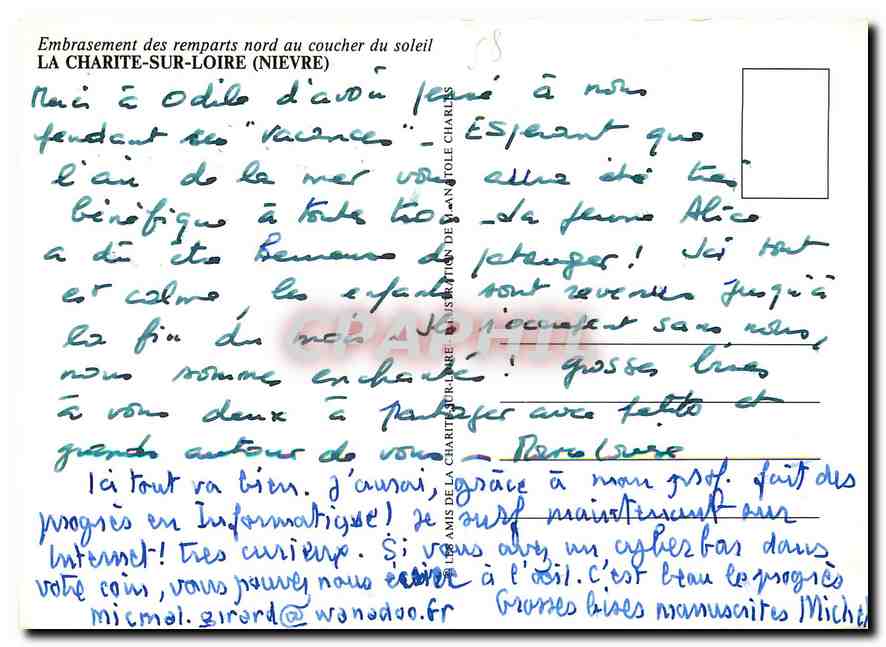 Embrasement des remparts nord au coucher du soleil
LA CHARITE-SUR-LOIRE (NIEVRE)
Merci à Odile d'avoir pensé à nous
pendant ses "vacances" - Espérant que
l'air de la mer vous aura été très
bénéfique à toutes trois - La jeune Alice
a dû être heureuse de patauger ! Ici tout
est calme, les enfants sont revenus jusqu'à
la fin du mois - Ils s'occupent sans nous,
nous sommes enchantés ! grosses bises
à vous deux à partager avec petits et
grands autour de vous - Marie Louise
Ici tout va bien. J'aurai, grâce à mon prof. fait des
progrès en Informatique ! Je surf maintenant sur
Internet ! très curieux. Si vous avez un cyberbar dans
votre coin, vous pouvez nous écrire à l'oeil. C'est beau le progrès
micmal.girard@wanadoo.fr
Grosses bises manuscrites Michel
© LES AMIS DE LA CHARITE-SUR-LOIRE - ILLUSTRATION DE ANATOLE CHARLES
CPAPHIL